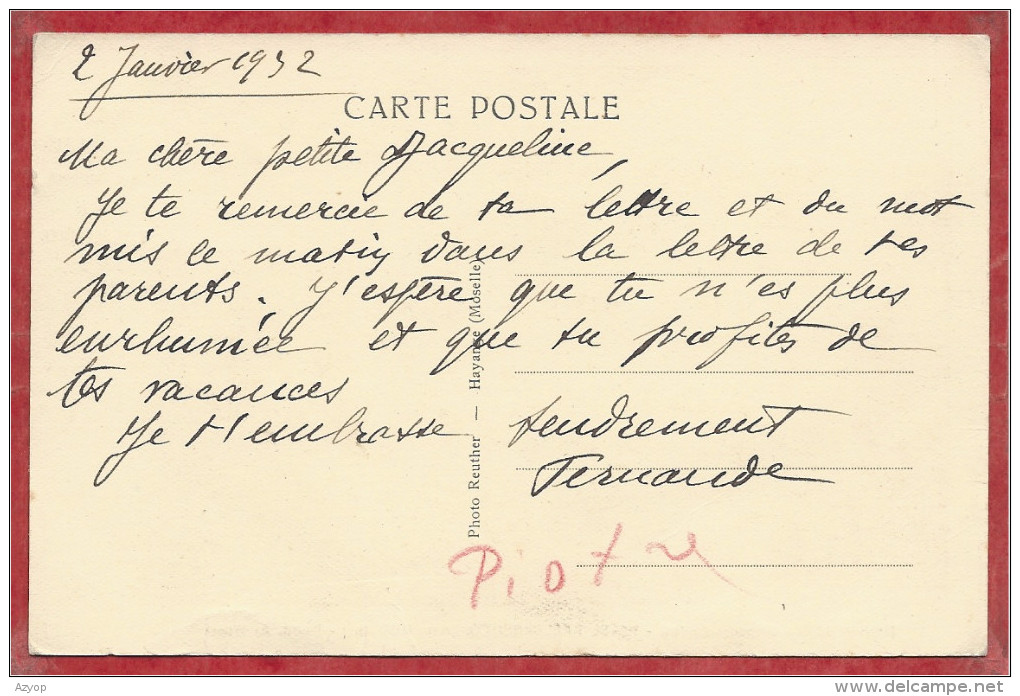 2 Janvier 1932
CARTE POSTALE
Ma chère petite Jacqueline,
Je te remercie de ta lettre et du mot
mis ce matin dans la lettre de tes
parents. J'espère que tu n'es plus
enrhumée et que tu profites de
tes vacances
Je t'embrasse tendrement
Fernande
Photo Reuther — Hayange (Moselle)
Azyop
www.delcampe.net